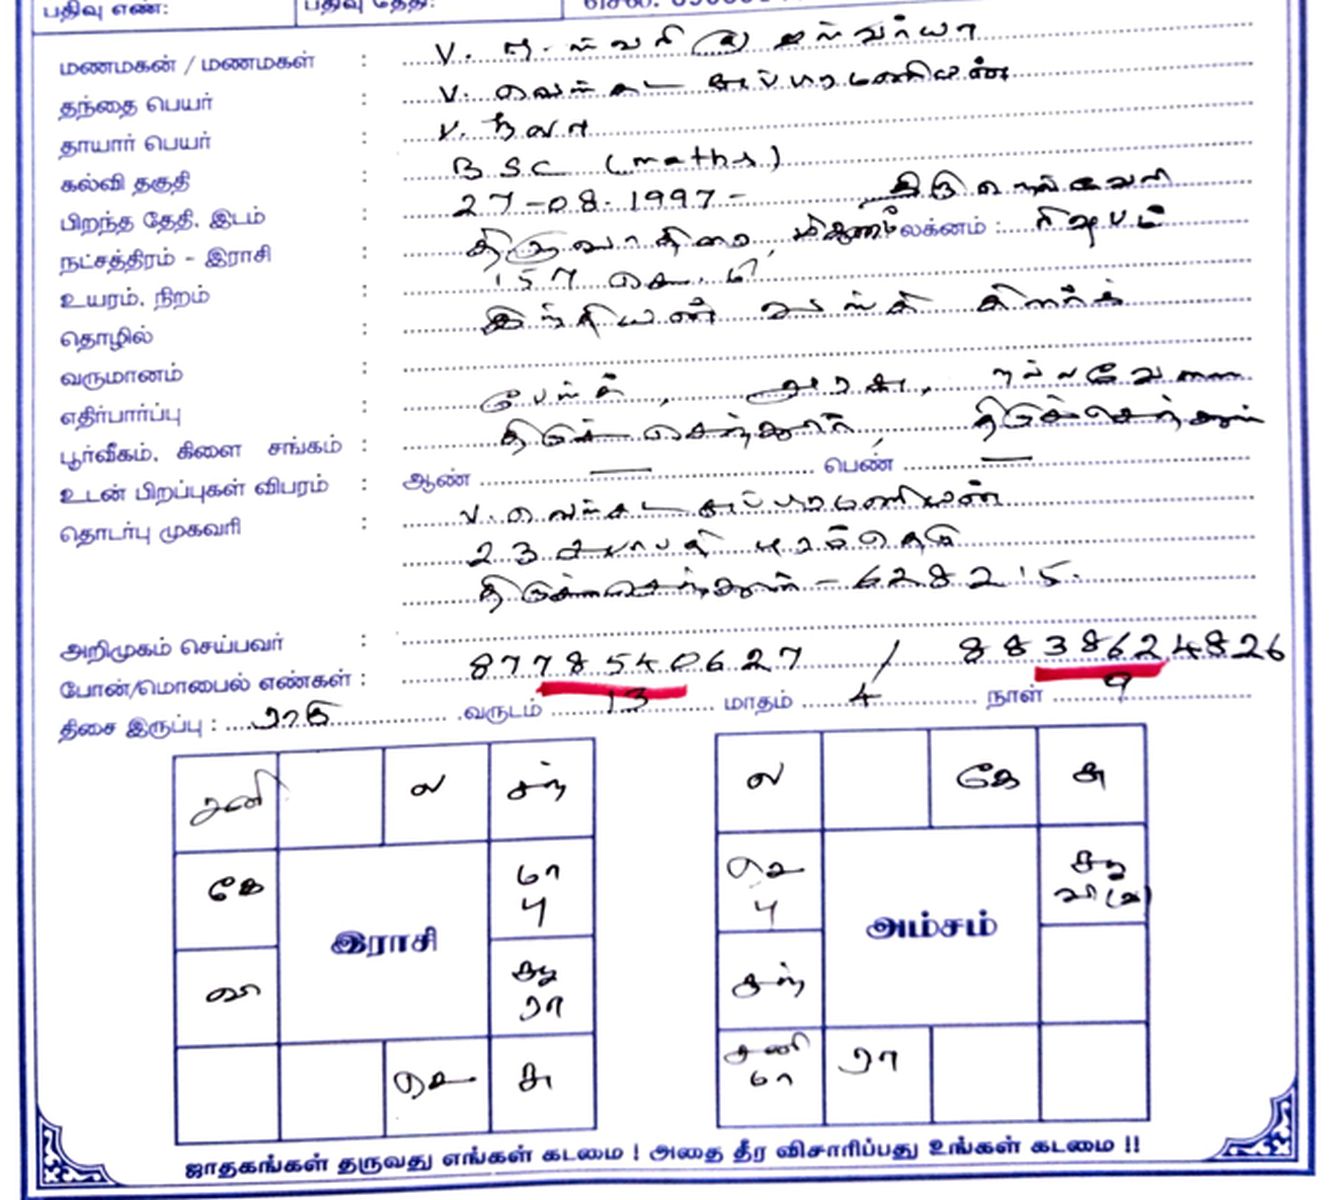 பதிவு எண்: பதிவு தேதி:
மணமகன் / மணமகள் : V.
தந்தை பெயர் : V. வெங்கட சுப்பரமணியன்
தாயார் பெயர் : V. கலா
கல்வி தகுதி : BSC (maths)
பிறந்த தேதி, இடம் : 27-08-1997 - திருநெல்வேலி
நட்சத்திரம் - இராசி : திருவாதிரை, மிதுனம் லக்னம் : ரிஷபம்
உயரம், நிறம் : 157 செ.மி
தொழில் : இந்தியன் வங்கி கிளர்க்
வருமானம் :
எதிர்பார்ப்பு : பேங்க், அரசு, நல்ல வேலை
பூர்வீகம், கிளை சங்கம் : திருச்செந்தூர், திருச்செந்தூர்
உடன் பிறப்புகள் விபரம் : ஆண் — பெண் —
தொடர்பு முகவரி : V. வெங்கட சுப்பரமணியன்
23 சபாபதி புரம் தெரு
திருச்செந்தூர் - 628215.
அறிமுகம் செய்பவர் :
போன்/மொபைல் எண்கள் : 8778540627 / 8838624826
திசை இருப்பு : ராகு வருடம் 13 மாதம் 4 நாள் 9
சனி ல சந்
கே மா பு
இராசி
வி சூ ரா
செ சு
ல கே சு
செ பு சூ
அம்சம்
சந்
சனி மா ரா
ஜாதகங்கள் தருவது எங்கள் கடமை ! அதை தீர விசாரிப்பது உங்கள் கடமை !!